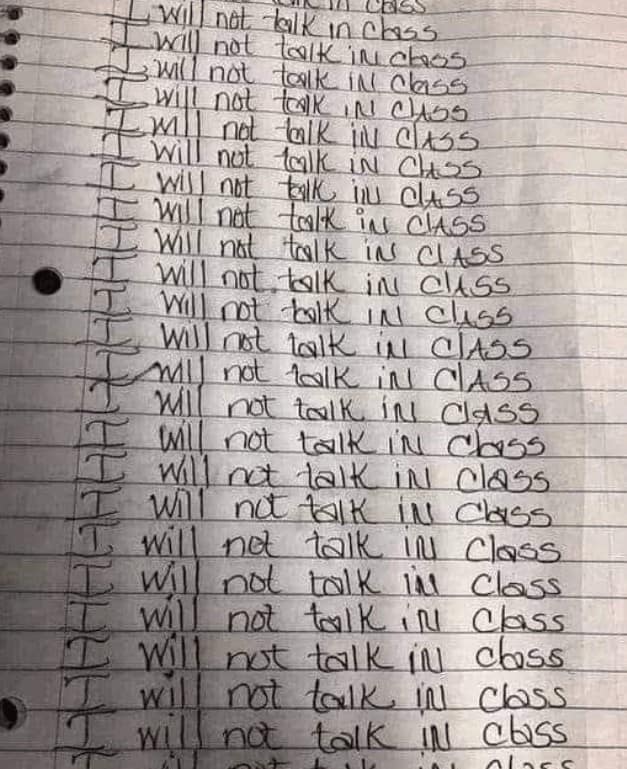 class
I will not talk in class
I will not talk iN class
I will not talk iN class
I will not talk iN ClASS
I will not talk iN ClASS
I will not talk iN ClASS
I will not talk iN ClASS
I will not talk iN ClASS
I will not talk iN ClASS
I will not talk iN ClASS
I will not talk iN ClASS
I will not talk iN ClASS
I will not talk iN ClASS
I will not talk iN ClASS
I will not talk iN Class
I will not talk iN Class
I will not talk iN Class
I will not talk iN Class
I will not talk iN Class
I will not talk iN Class
I will not talk iN class
I will not talk iN class
I will not talk iN class
class